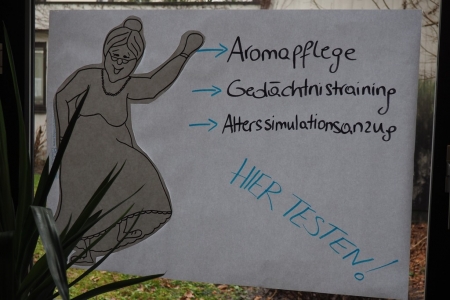 → Aromapflege
→ Gedächtnistraining
→ Alterssimulationsanzug
HIER TESTEN!